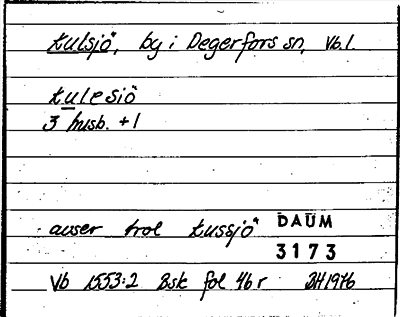 tulsjö, by i Degerfors sn, Vb.l.
tulesiö
3 husb. +1
avser trol tussjö DAUM
3173
Vb 1553:2 Bsk fol 46 r BH 1976